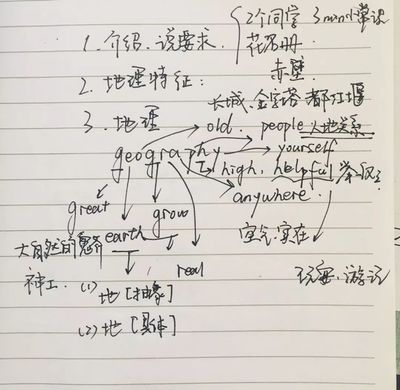 2个同学 3min小常识
1. 介绍、说要求. 花名册
赤壁.
2. 地理特征:
长城、金字塔 都江堰
3. 地理
old. people 人地关系
geography yourself
I high, helpful
great anywhere.
grow
大自然的 earth 室气.实在
real
神工. (1) 地[抽象] 游记
(2) 地[具体]